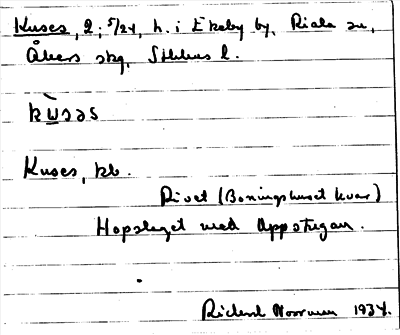 Kuses, 2; 5/24, h. i Ekeby by, Riala sn,
Åkers skg, Sthlms l.
kẁsəs
Kuses, kb.
Rivet (Boningshuset kvar)
Hopslaget med Uppstugan.
Rickard Norrman 1934.